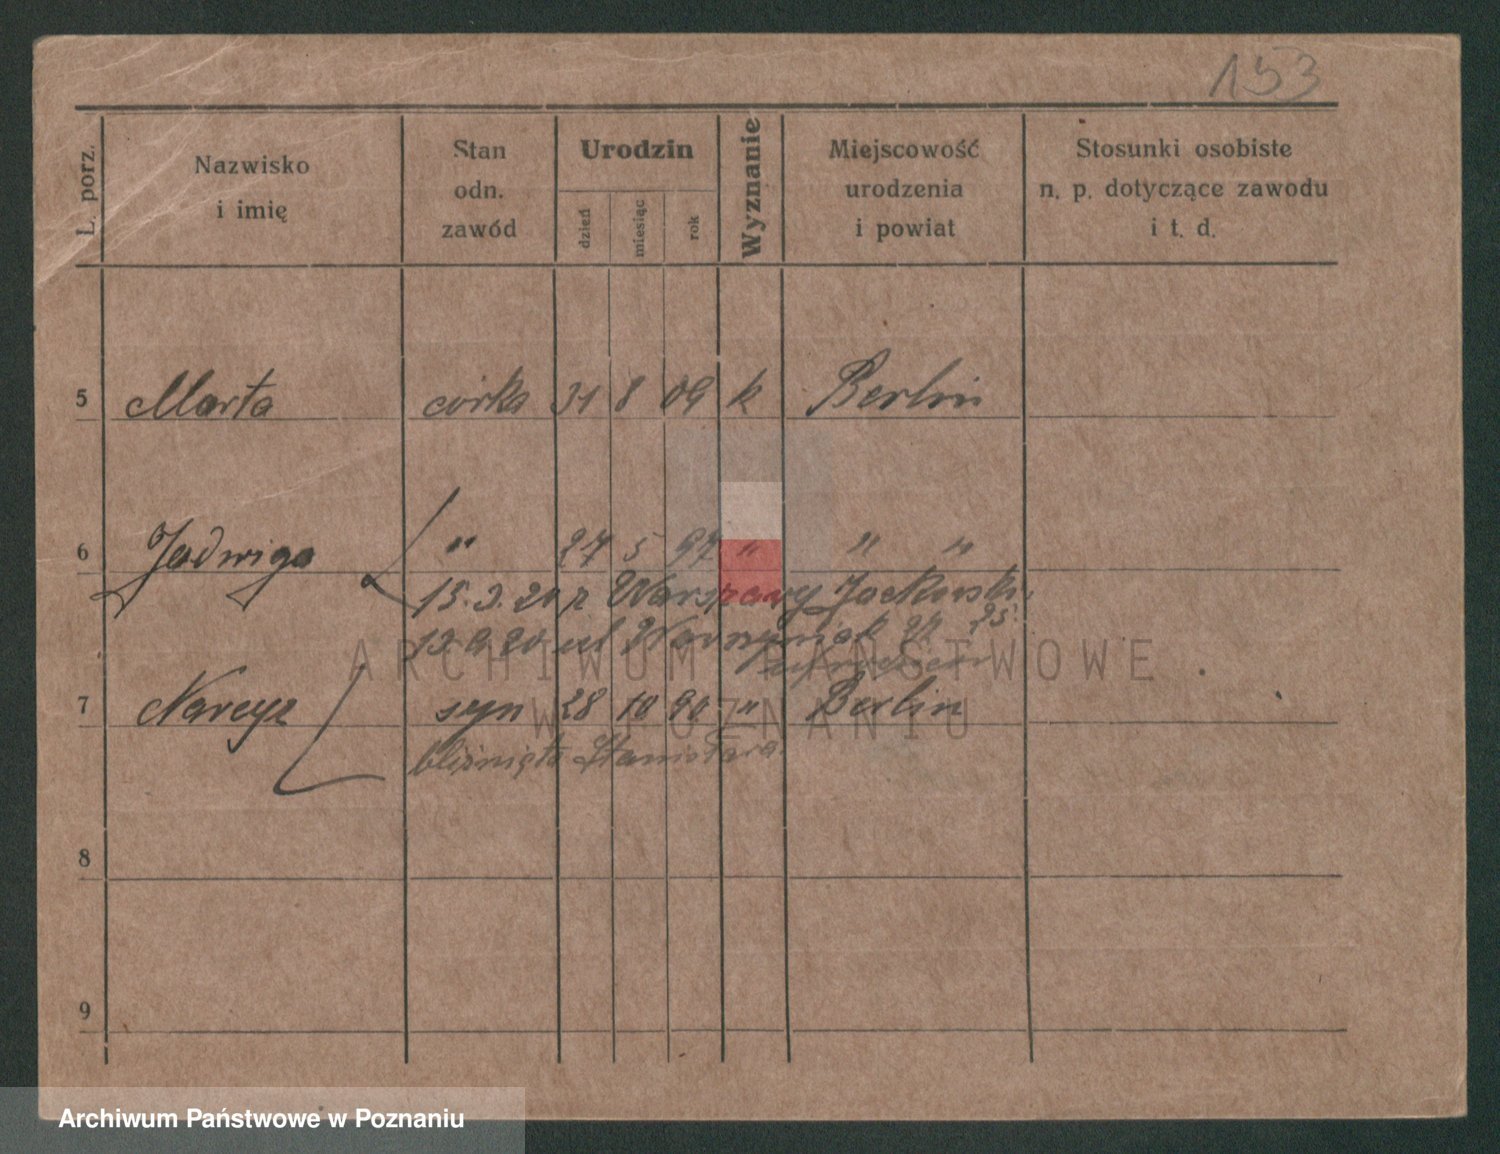 153
L. porz.
Nazwisko
i imię
Stan
odn.
zawód
Urodzin
dzień
miesiąc
rok
Wyznanie
Miejscowość
urodzenia
i powiat
Stosunki osobiste
n. p. dotyczące zawodu
i t. d.
5 Marta córka 31 8 09 k Berlin
6 Jadwiga " 27 5 97 " " "
15.3.20 z Warszawy
ul
7 Narcyz syn 28 10 90 " Berlin
bliźnięta Stanisława
8
9
ARCHIWUM PAŃSTWOWE
W POZNANIU
Archiwum Państwowe w Poznaniu